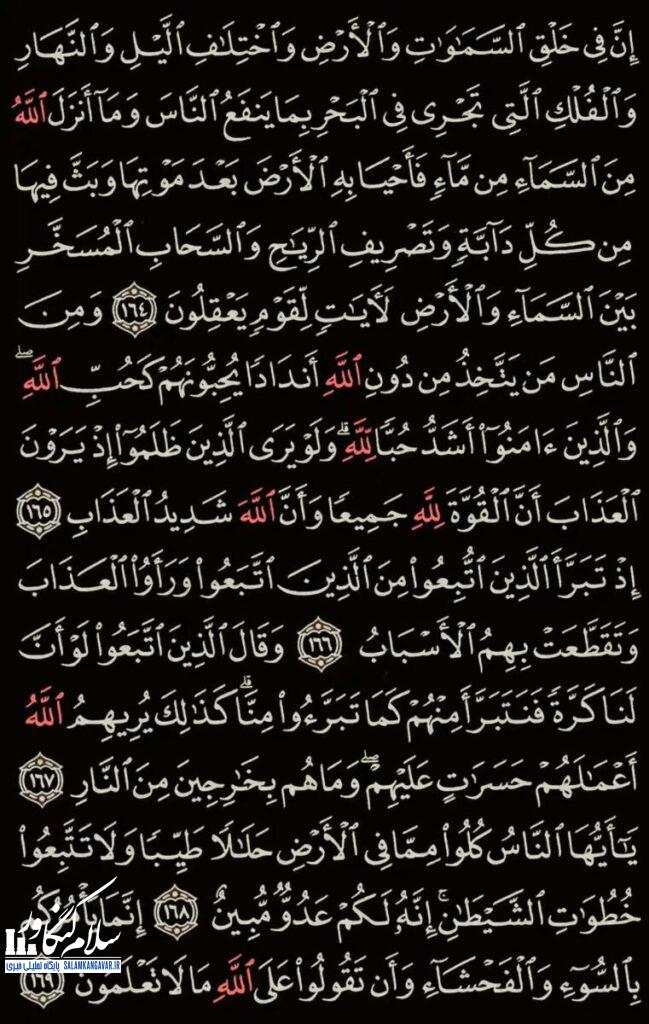 إِنَّ فِي خَلْقِ ٱلسَّمَٰوَٰتِ وَٱلْأَرْضِ وَٱخْتِلَٰفِ ٱلَّيْلِ وَٱلنَّهَارِ
وَٱلْفُلْكِ ٱلَّتِي تَجْرِي فِي ٱلْبَحْرِ بِمَا يَنفَعُ ٱلنَّاسَ وَمَآ أَنزَلَ ٱللَّهُ
مِنَ ٱلسَّمَآءِ مِن مَّآءٍ فَأَحْيَا بِهِ ٱلْأَرْضَ بَعْدَ مَوْتِهَا وَبَثَّ فِيهَا
مِن كُلِّ دَآبَّةٍ وَتَصْرِيفِ ٱلرِّيَٰحِ وَٱلسَّحَابِ ٱلْمُسَخَّرِ
بَيْنَ ٱلسَّمَآءِ وَٱلْأَرْضِ لَأٓيَٰتٍ لِّقَوْمٍ يَعْقِلُونَ ١٦٤ وَمِنَ
ٱلنَّاسِ مَن يَتَّخِذُ مِن دُونِ ٱللَّهِ أَندَادًا يُحِبُّونَهُمْ كَحُبِّ ٱللَّهِ ۖ
وَٱلَّذِينَ ءَامَنُوٓا۟ أَشَدُّ حُبًّا لِّلَّهِ ۗ وَلَوْ يَرَى ٱلَّذِينَ ظَلَمُوٓا۟ إِذْ يَرَوْنَ
ٱلْعَذَابَ أَنَّ ٱلْقُوَّةَ لِلَّهِ جَمِيعًا وَأَنَّ ٱللَّهَ شَدِيدُ ٱلْعَذَابِ ١٦٥
إِذْ تَبَرَّأَ ٱلَّذِينَ ٱتُّبِعُوا۟ مِنَ ٱلَّذِينَ ٱتَّبَعُوا۟ وَرَأَوُا۟ ٱلْعَذَابَ
وَتَقَطَّعَتْ بِهِمُ ٱلْأَسْبَابُ ١٦٦ وَقَالَ ٱلَّذِينَ ٱتَّبَعُوا۟ لَوْ أَنَّ
لَنَا كَرَّةً فَنَتَبَرَّأَ مِنْهُمْ كَمَا تَبَرَّءُوا۟ مِنَّا ۗ كَذَٰلِكَ يُرِيهِمُ ٱللَّهُ
أَعْمَٰلَهُمْ حَسَرَٰتٍ عَلَيْهِمْ ۖ وَمَا هُم بِخَٰرِجِينَ مِنَ ٱلنَّارِ ١٦٧
يَٰٓأَيُّهَا ٱلنَّاسُ كُلُوا۟ مِمَّا فِي ٱلْأَرْضِ حَلَٰلًا طَيِّبًا وَلَا تَتَّبِعُوا۟
خُطُوَٰتِ ٱلشَّيْطَٰنِ ۚ إِنَّهُۥ لَكُمْ عَدُوٌّ مُّبِينٌ ١٦٨ إِنَّمَا يَأْمُرُكُم
بِٱلسُّوٓءِ وَٱلْفَحْشَآءِ وَأَن تَقُولُوا۟ عَلَى ٱللَّهِ مَا لَا تَعْلَمُونَ ١٦٩
سلام کنگاور
پایگاه تحلیلی خبری SALAMKANGAVAR.IR